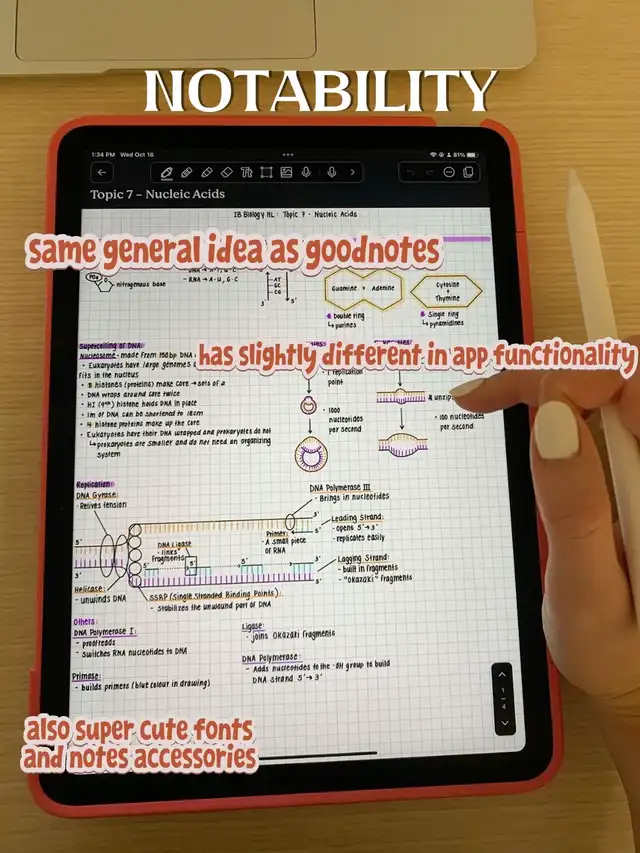 NOTABILITY
1:34 PM Wed Oct 18
81%
Topic 7 – Nucleic Acids
IB Biology HL : Topic 7 - Nucleic Acids
same general idea as goodnotes
nitrogenous base
RNA → A-U, G-C
AT
GC
CG
3'
5'
Guanine + Adenine
Cytosine
+
Thymine
Double ring
↳ purines
Single ring
↳ pyramidines
has slightly different in app functionality
Supercoiling of DNA:
Nucleosome - made from 150bp DNA
• Eukaryotes have large genomes
fits in the nucleus
• 8 histones (proteins) make core → sets of 2
• DNA wraps around core twice
• H1 (9th) histone holds DNA in place
• 1m of DNA can be shortened to 18cm
• 4 histone proteins make up the core
• Eukaryotes have their DNA wrapped and prokaryotes do not
↳ prokaryotes are smaller and do not need an organizing
system
1 replication
point
• 1000
nucleotides
per second
• 100 nucleotides
per second
Replication:
DNA Gyrase:
- Relives tension
DNA Polymerase III
- Brings in nucleotides
Leading Strand:
- opens 5'→3'
- replicates easily
Primer:
- A small piece
of RNA
DNA Ligase
- "links"
fragments
Lagging Strand:
- built in fragments
- "Okazaki" fragments
5'
3'
3'
5'
5'
5'
3'
5'
Helicase:
- unwinds DNA
SSBP (Single Stranded Binding Points):
- Stabilizes the unwound part of DNA
Others:
DNA Polymerase I:
- proofreads
- Switches RNA nucleotides to DNA
Primase:
- builds primers (blue colour in drawing)
Ligase:
- joins Okazaki fragments
DNA Polymerase:
- Adds nucleotides to the -OH group to build
DNA strand 5'→3'
also super cute fonts
and notes accessories